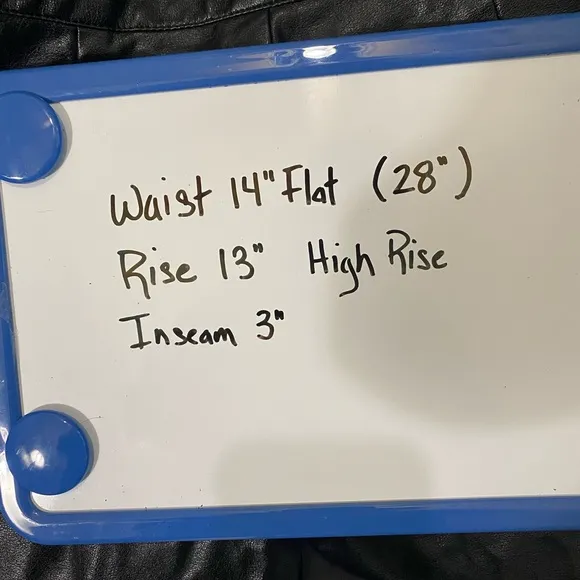 Waist 14" Flat (28")
Rise 13" High Rise
Inseam 3"